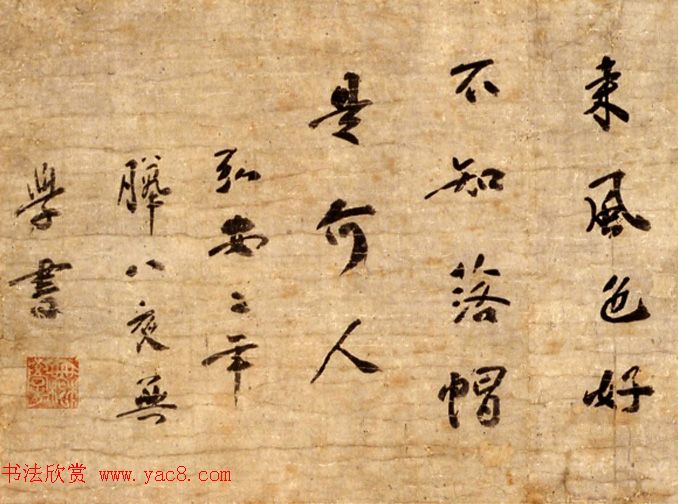 来風色好
不知落帽
是何人
弘安二年
臘八夜無
學書
书法欣赏 www.yac8.com